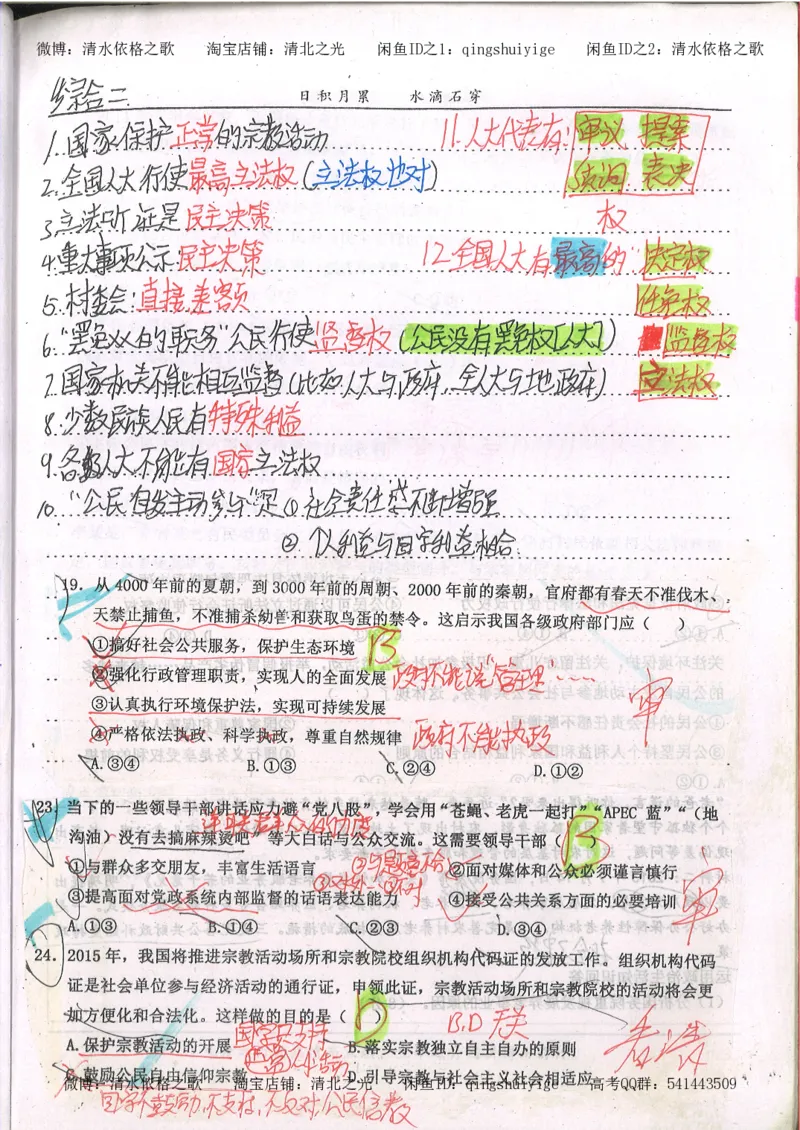 微博：清水依格之歌 淘宝店铺：清北之光 闲鱼ID之1：qingshuiyige 闲鱼ID之2：清水依格之歌
综合二
日积月累 水滴石穿
1.国家保护正常的宗教活动
11.人大代表有：审议 提案
质询 表决
权
2.全国人大行使最高立法权（立法权也对）
3.立法听证是民主决策
4.重大事项公示：民主决策
12.全国人大有最高的"决定权
任免权
监督权
立法权
5.村委会：直接差额
6."罢免××的职务"公民行使监督权（公民没有罢免权[人大]）
7.国家机关不能相互监督（比如人大与政府，全人大与地政府）
8.少数民族人民有特殊利益
9.各级人大不能有国家立法权
10."公民自发主动参与"是①社会责任感不断增强
②个人利益与国家利益相结合.
19．从 4000 年前的夏朝，到 3000 年前的周朝、2000 年前的秦朝，官府都有春天不准伐木、夏
天禁止捕鱼，不准捕杀幼兽和获取鸟蛋的禁令。这启示我国各级政府部门应（ ）
①搞好社会公共服务，保护生态环境
B
②强化行政管理职责，实现人的全面发展
政府不能说"管理"……
③认真执行环境保护法，实现可持续发展
审
④严格依法执政、科学执政，尊重自然规律
政府不能执政
A.③④ B.①③ C.②④ D.①②
23．当下的一些领导干部讲话应力避“党八股”，学会用“苍蝇、老虎一起打”“APEC 蓝”“（地
沟油）没有去搞麻辣烫吧”等大白话与公众交流。这需要领导干部（ ）
B
①与群众多交朋友，丰富生活语言 ②面对媒体和公众必须谨言慎行
②与题意不合
③提高面对党政系统内部监督的话语表达能力 ④接受公共关系方面的必要培训
审
A.①③ B.①④ C.②③ D.③④
24．2015 年，我国将推进宗教活动场所和宗教院校组织机构代码证的发放工作。组织机构代码
证是社会单位参与经济活动的通行证，申领此证，宗教活动场所和宗教院校的活动将会更
加方便化和合法化。这样做的目的是（ ）
D
B.D 关
A.保护宗教活动的开展 B.落实宗教独立自主自办的原则
国家只支持
正常人活动
看清
C.鼓励公民自由信仰宗教 D.引导宗教与社会主义社会相适应
微博：清水依格之歌 淘宝店铺：清北之光 闲鱼ID之2：qingshuiyige 高考QQ群：541443509
国家不鼓励，不支持，不反对公民信教